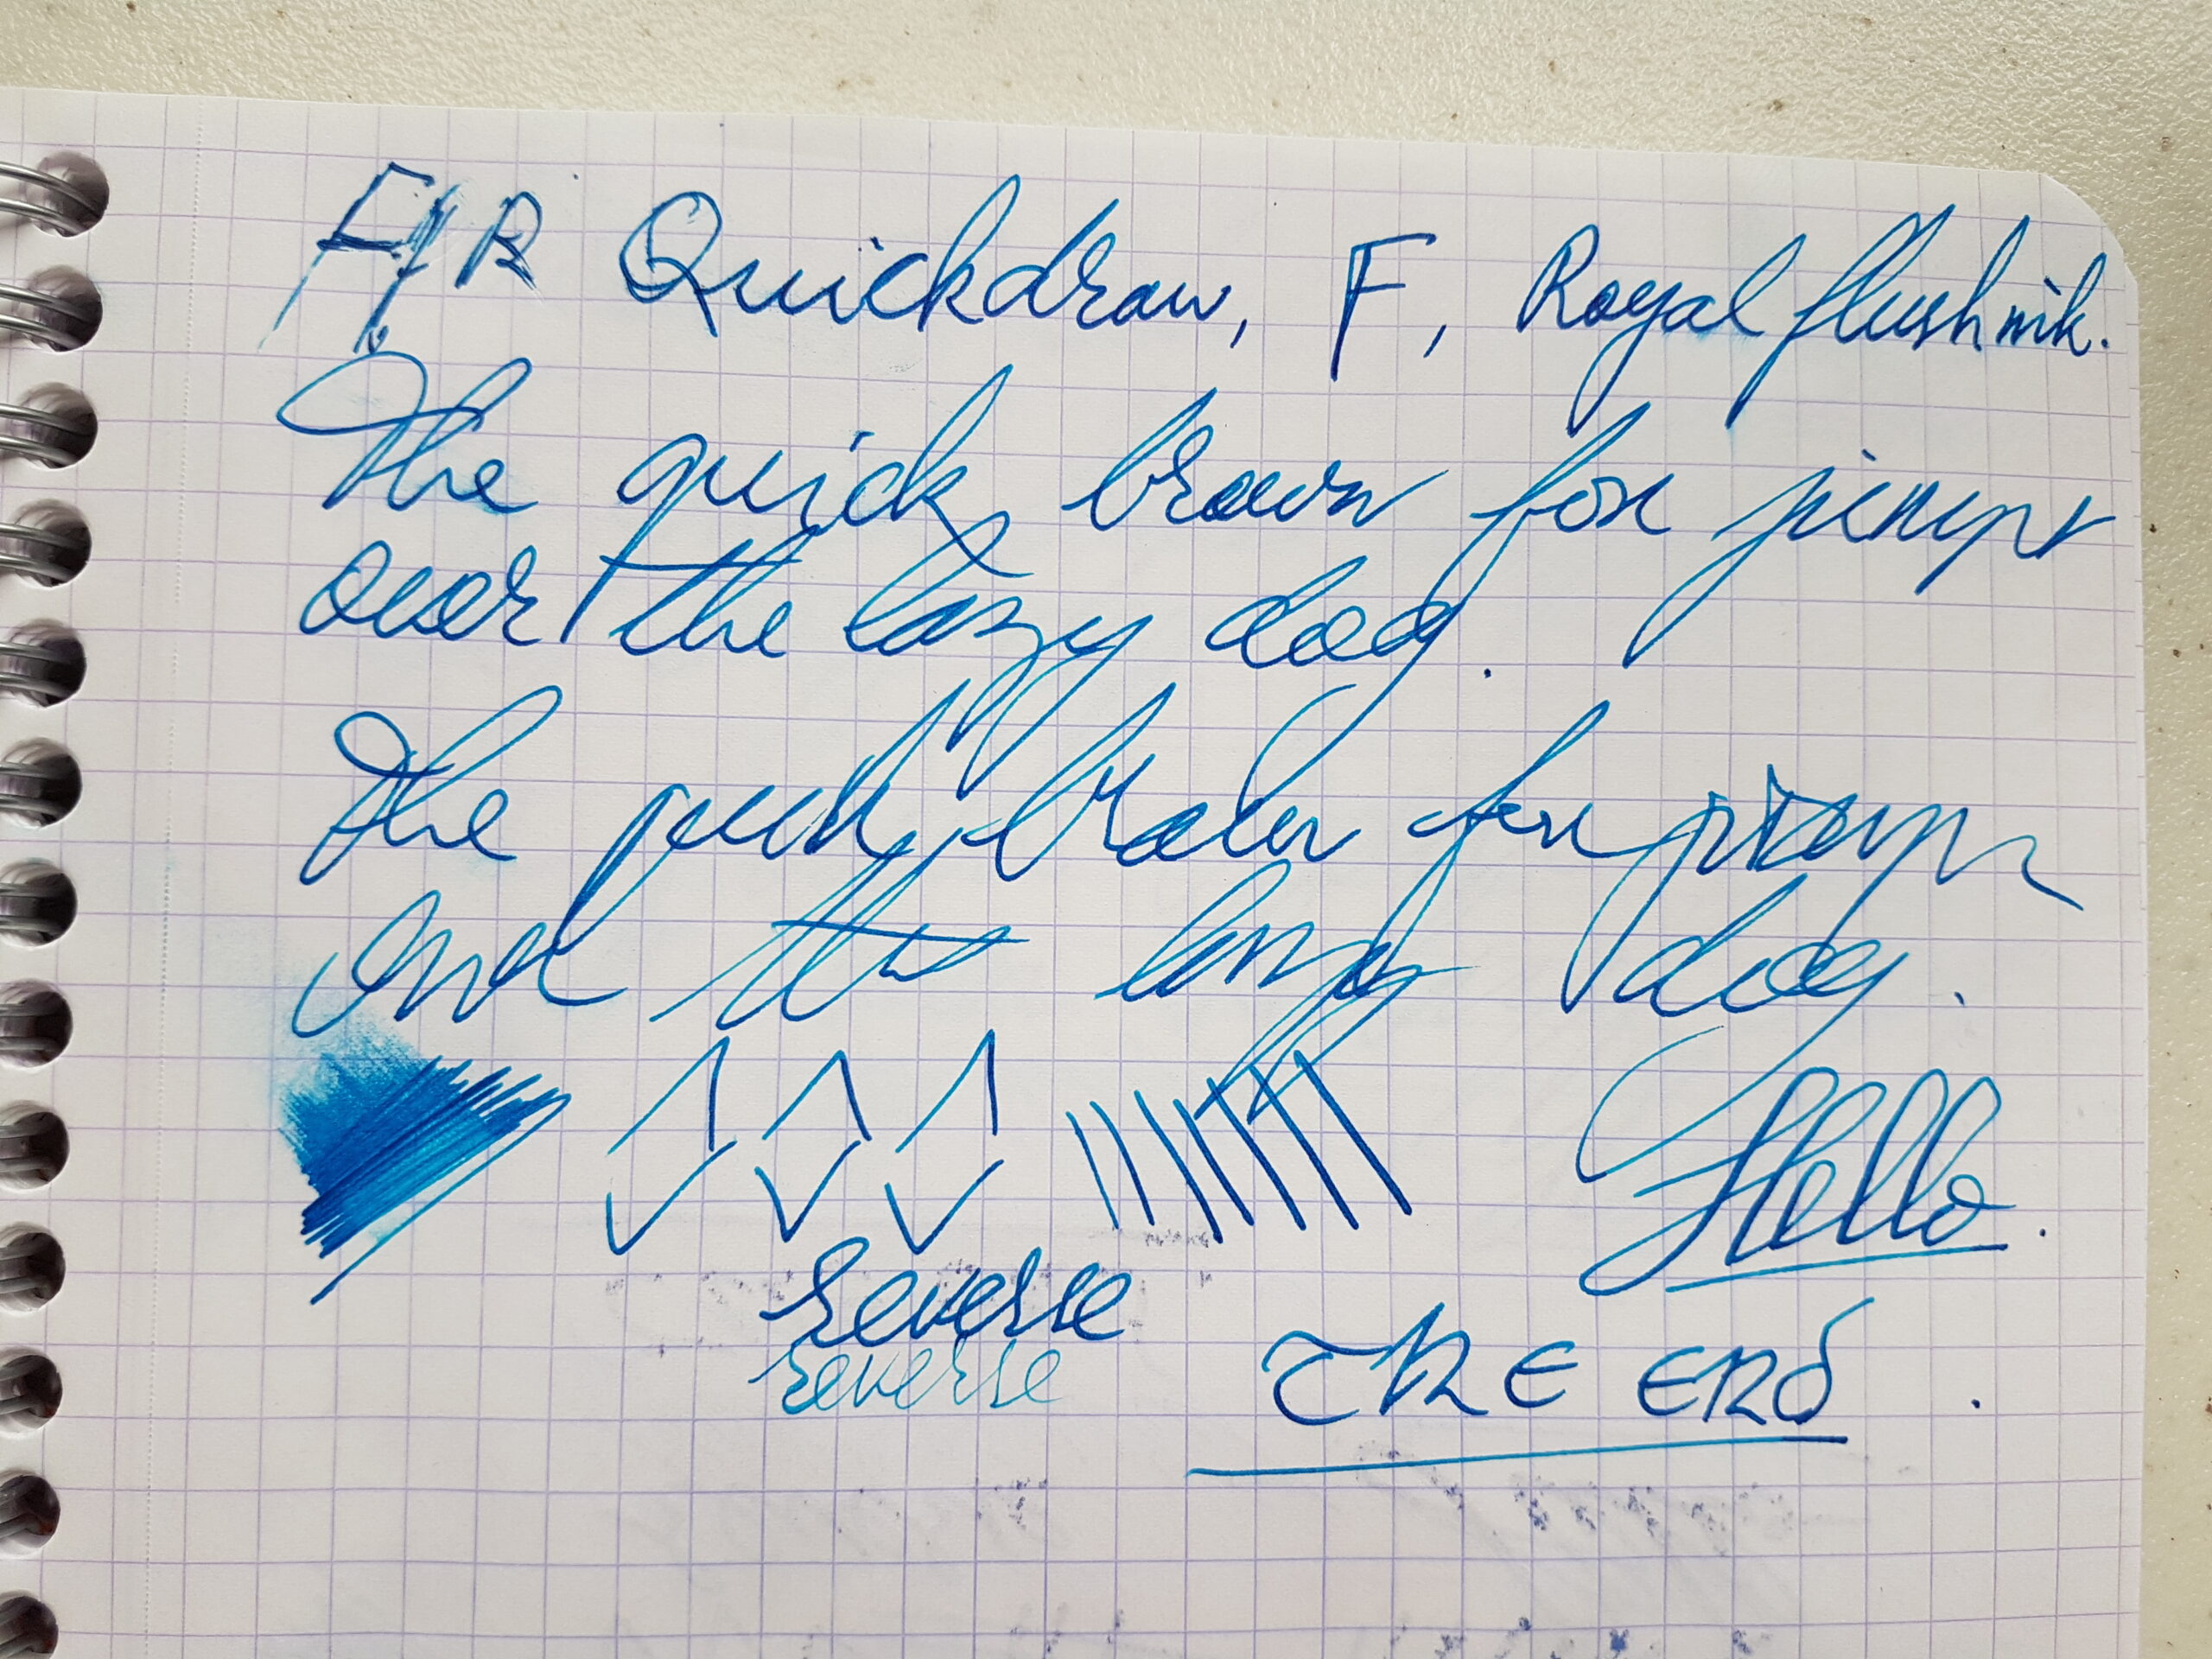 FPR Quickdraw, F, Royal flush ink.
The quick brown fox jumps
over the lazy dog.
The quick brown fox jumps
over the lazy dog.
Hello.
reverse
reverse
THE END.